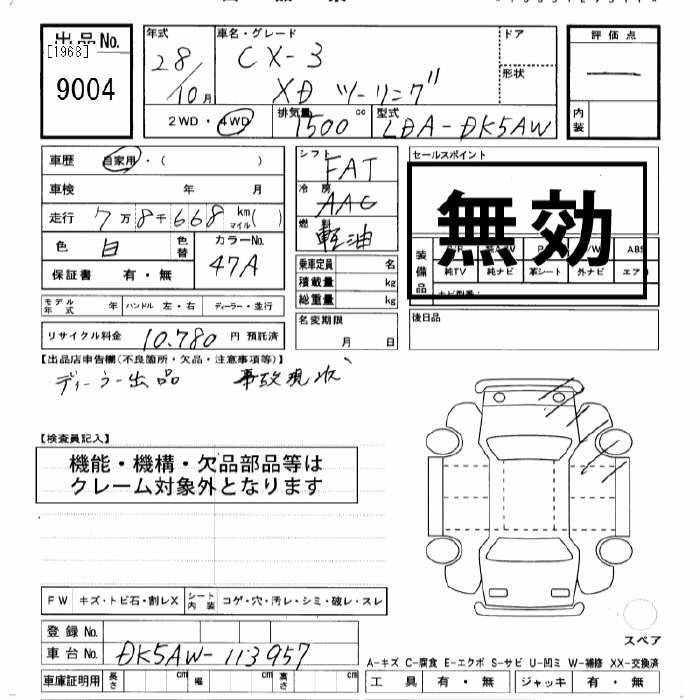 出品No.
[1968]
9004
年式
28/10月
車名・グレード
CX-3
XD ツーリング
ドア
形状
評価点
内装
2WD・4WD
排気量 1500 cc
型式 LDA-DK5AW
車歴 自家用・( )
車検 年 月
走行 7万8千668 km マイル ( )
色 白 色替
カラーNo. 47A
保証書 有・無
モデル年式 年 ハンドル 左・右 ディーラー・並行
リサイクル料金 10.780 円 預託済
シフト FAT
冷房 AAC
燃料 軽油
乗車定員 名
積載量 kg
総重量 kg
名変期限
月 日
セールスポイント
無効
装備品
ABS
純TV 純ナビ 革シート 外ナビ エアB
後日品
【出品店申告欄(不良箇所・欠品・注意事項等)】
ディーラー出品 事故現状
【検査員記入】
機能・機構・欠品部品等は
クレーム対象外となります
FW キズ・トビ石・割レX シート内装 コゲ・穴・汚レ・シミ・破レ・スレ
登録No.
車台No. DK5AW-113957
車庫証明用 長さ cm 幅 cm 高さ cm
スペア
A-キズ C-腐食 E-エクボ S-サビ U-凹ミ W-補修 XX-交換済
工具 有・無 ジャッキ 有・無